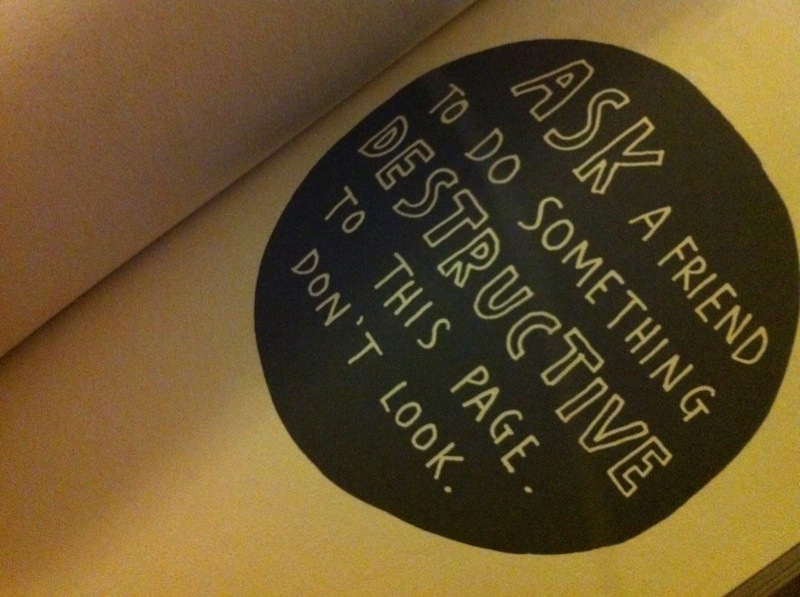 ASK A FRIEND
TO DO SOMETHING
DESTRUCTIVE
TO THIS PAGE.
DON'T LOOK.